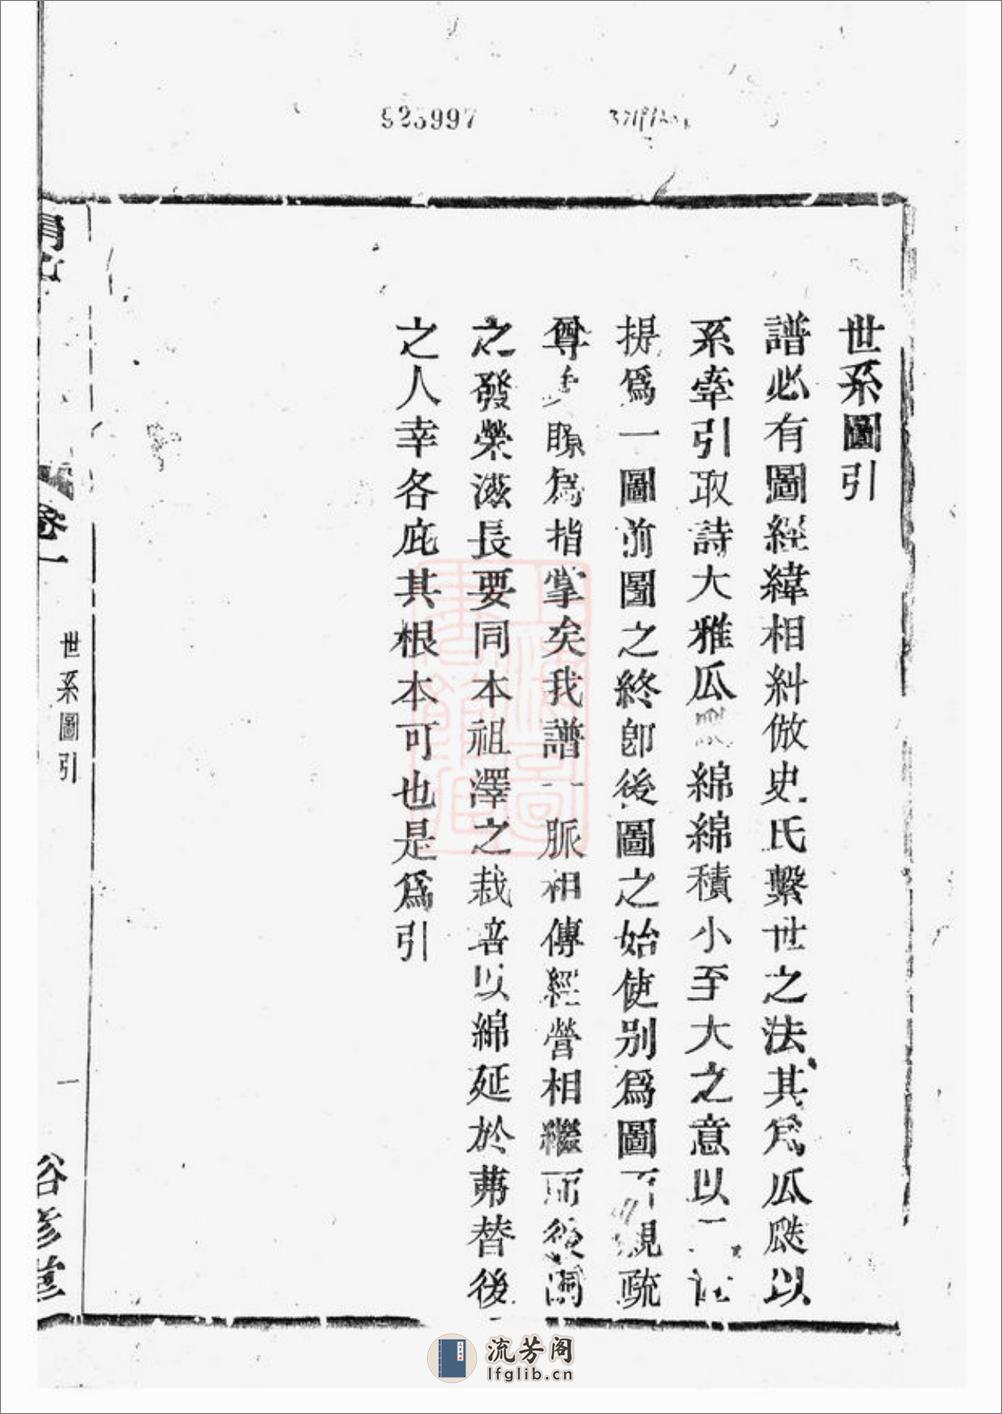 525997
世系圖引
譜必有圖經緯相糾倣史氏繫世之法其為瓜瓞以
系牽引取詩大雅瓜綿綿積小至大之意以
提爲一圖前圖之終卽後圖之始使别爲圖而親疏
尊瞭爲指掌矣我譜一脈相傳經營相繼而後
之發榮滋長要同本祖澤之栽培以綿延於茀替後
之人幸各庇其根本可也是爲引
卷一
世系圖引
一
裕彥堂
流芳阁
lfglib.cn